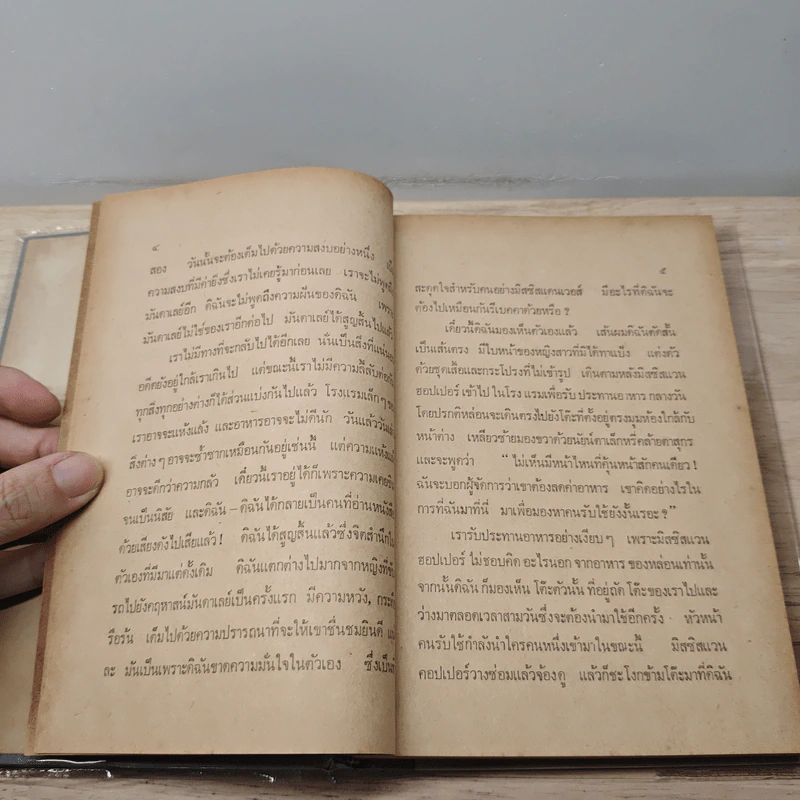 ๔
สอง วันนั้นจะต้องเต็มไปด้วยความสงบอย่างหนึ่ง
ความสงบที่มีค่ายิ่งซึ่งเราไม่เคยรู้มาก่อนเลย เราจะไม่พูดถึง
มันดาเลย์อีก ดิฉันจะไม่พูดถึงความฝันของดิฉัน เพราะ
มันดาเลย์ไม่ใช่ของเราอีกต่อไป มันดาเลย์ได้สูญสิ้นไปแล้ว
เราไม่มีทางที่จะกลับไปได้อีกเลย นั่นเป็นสิ่งที่แน่นอน
อดีตยังอยู่ใกล้เราเกินไป แต่ขณะนี้เราไม่มีความลี้ลับต่อกัน
ทุกสิ่งทุกอย่างต่างก็ได้ส่วนแบ่งกันไปแล้ว โรงแรมเล็กๆ ของ
เราอาจจะแห้งแล้ง และอาหารอาจจะไม่ดีนัก วันแล้ววันเล่า
สิ่งต่างๆ อาจจะซ้ำซากเหมือนกันอยู่เช่นนี้ แต่ความแห้งแล้ง
อาจจะดีกว่าความกลัว เดี๋ยวนี้เราอยู่ได้ก็เพราะความเคยชิน
จนเป็นนิสัย และดิฉัน – ดิฉันได้กลายเป็นคนที่อ่านหนังสือ
ด้วยเสียงดังไปเสียแล้ว! ดิฉันได้สูญสิ้นแล้วซึ่งจิตสำนึกใน
ตัวเองที่มีมาแต่ดั้งเดิม ดิฉันแตกต่างไปมากจากหญิงที่ขับ
รถไปยังคฤหาสน์มันดาเลย์เป็นครั้งแรก มีความหวัง, กระตือ
รือร้น เต็มไปด้วยความปรารถนาที่จะให้เขาชื่นชมยินดี และ
ละ มันเป็นเพราะดิฉันขาดความมั่นใจในตัวเอง ซึ่งเป็นที่
๕
สะดุดใจสำหรับคนอย่างมิสซิสแดนเวอส์ มีอะไรที่ดิฉันจะ
ต้องไปเหมือนกับรีเบคคาด้วยหรือ?
เดี๋ยวนี้ดิฉันมองเห็นตัวเองแล้ว เส้นผมดิฉันตัดสั้น
เป็นเส้นตรง มีใบหน้าของหญิงสาวที่มิได้ทาแป้ง แต่งตัว
ด้วยชุดเสื้อและกระโปรงที่ไม่เข้ารูป เดินตามหลังมิสซิสแวน
ฮอปเปอร์ เข้าไป ในโรง แรมเพื่อรับ ประทานอาหาร กลางวัน
โดยปรกติหล่อนจะเดินตรงไปยังโต๊ะที่ตั้งอยู่ตรงมุมห้องใกล้กับ
หน้าต่าง เหลียวซ้ายมองขวาด้วยนัยน์ตาเล็กหรี่คล้ายตาสุกร
และจะพูดว่า “ ไม่เห็นมีหน้าไหนที่คุ้นหน้าสักคนเดียว!
ฉันจะบอกผู้จัดการว่าเขาต้องลดค่าอาหาร เขาคิดอย่างไรใน
การที่ฉันมาที่นี่ มาเพื่อมองหาคนรับใช้ยังงั้นเรอะ? ”
เรารับประทานอาหารอย่างเงียบๆ เพราะมิสซิสแวน
ฮอปเปอร์ ไม่ชอบคิด อะไรนอก จากอาหาร ของหล่อนเท่านั้น
จากนั้นดิฉัน ก็มองเห็น โต๊ะตัวนั้น ที่อยู่ถัด โต๊ะของเราไปและ
ว่างมาตลอดเวลาสามวันซึ่งจะต้องนำมาใช้อีกครั้ง หัวหน้า
คนรับใช้กำลังนำใครคนหนึ่งเข้ามาในขณะนี้ มิสซิสแวน
คอปเปอร์วางซ่อมแล้วจ้องดู แล้วก็ชะโงกข้ามโต๊ะมาที่ดิฉัน